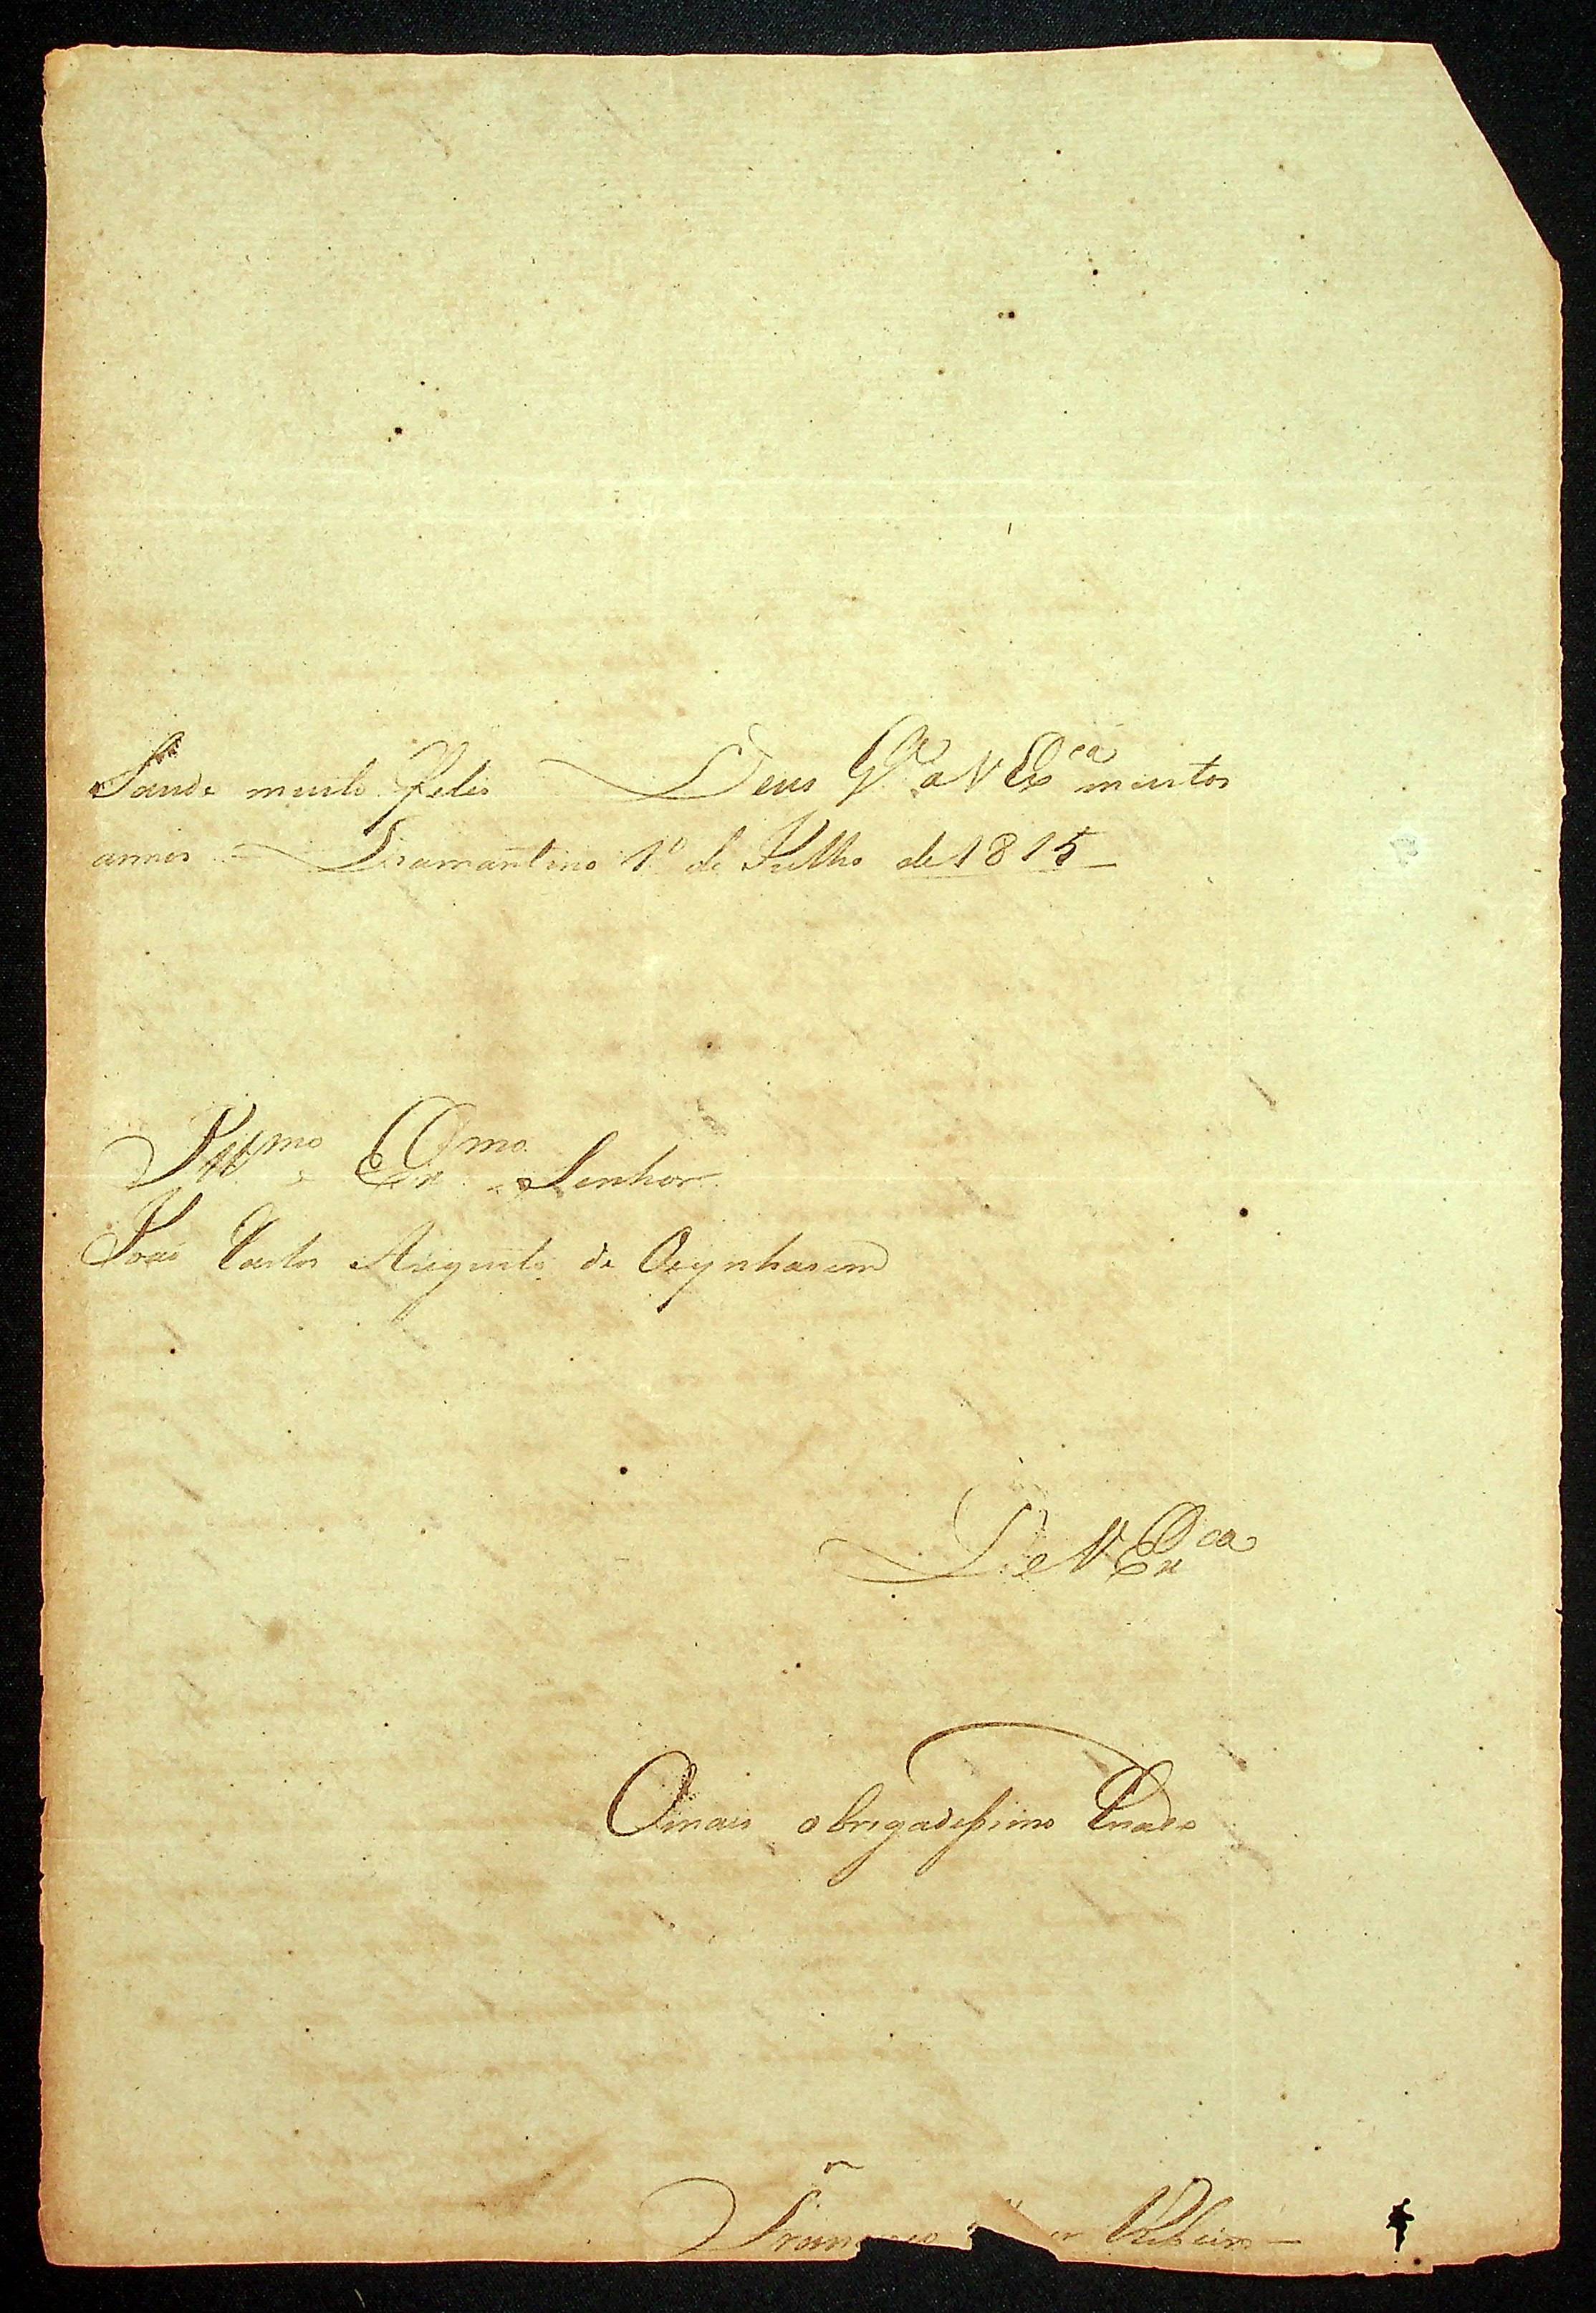 Saude muito Felis Deus G.e a V Ex.ca muitos
annos = Diamantino 1.º de Julho de 1815
Ill.mo e Ex.mo Senhor
João Carlos Augusto de Oeynhasem
De V Ex.ca
O mais obrigadissimo Criado
Francisco Ribeiro